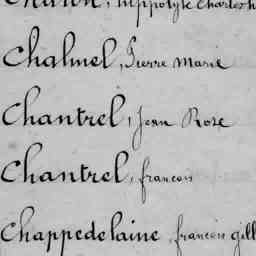 Hippolyte Charles
Chalmel, Pierre Marie
Chantrel, Jean Rose
Chantrel, francois
Chappedelaine, francois gill